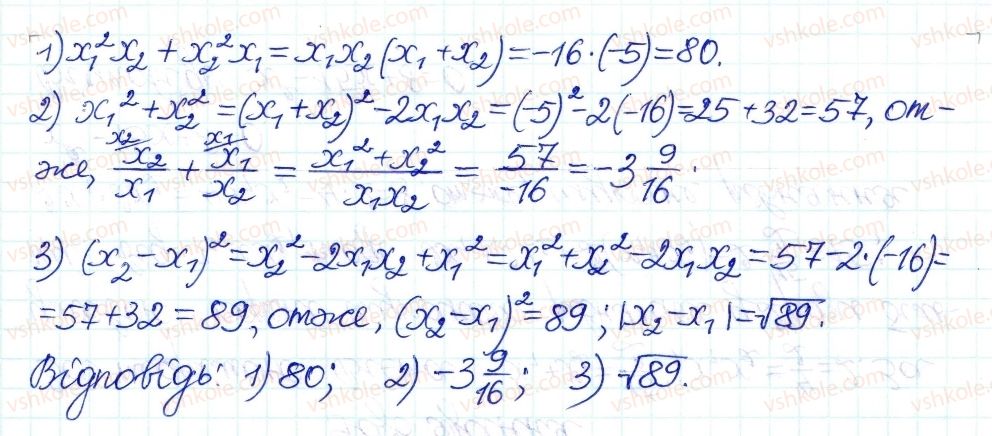 1) x₁²x₂ + x₂²x₁ = x₁x₂(x₁ + x₂) = -16·(-5) = 80.
2) x₁² + x₂² = (x₁ + x₂)² - 2x₁x₂ = (-5)² - 2(-16) = 25 + 32 = 57, от-
же, x₂/x₁ + x₁/x₂ = (x₁² + x₂²)/(x₁x₂) = 57/-16 = -3 9/16.
3) (x₂ - x₁)² = x₂² - 2x₁x₂ + x₁² = x₁² + x₂² - 2x₁x₂ = 57 - 2·(-16) =
= 57 + 32 = 89, отже, (x₂ - x₁)² = 89; |x₂ - x₁| = √89.
Відповідь: 1) 80; 2) -3 9/16; 3) √89.